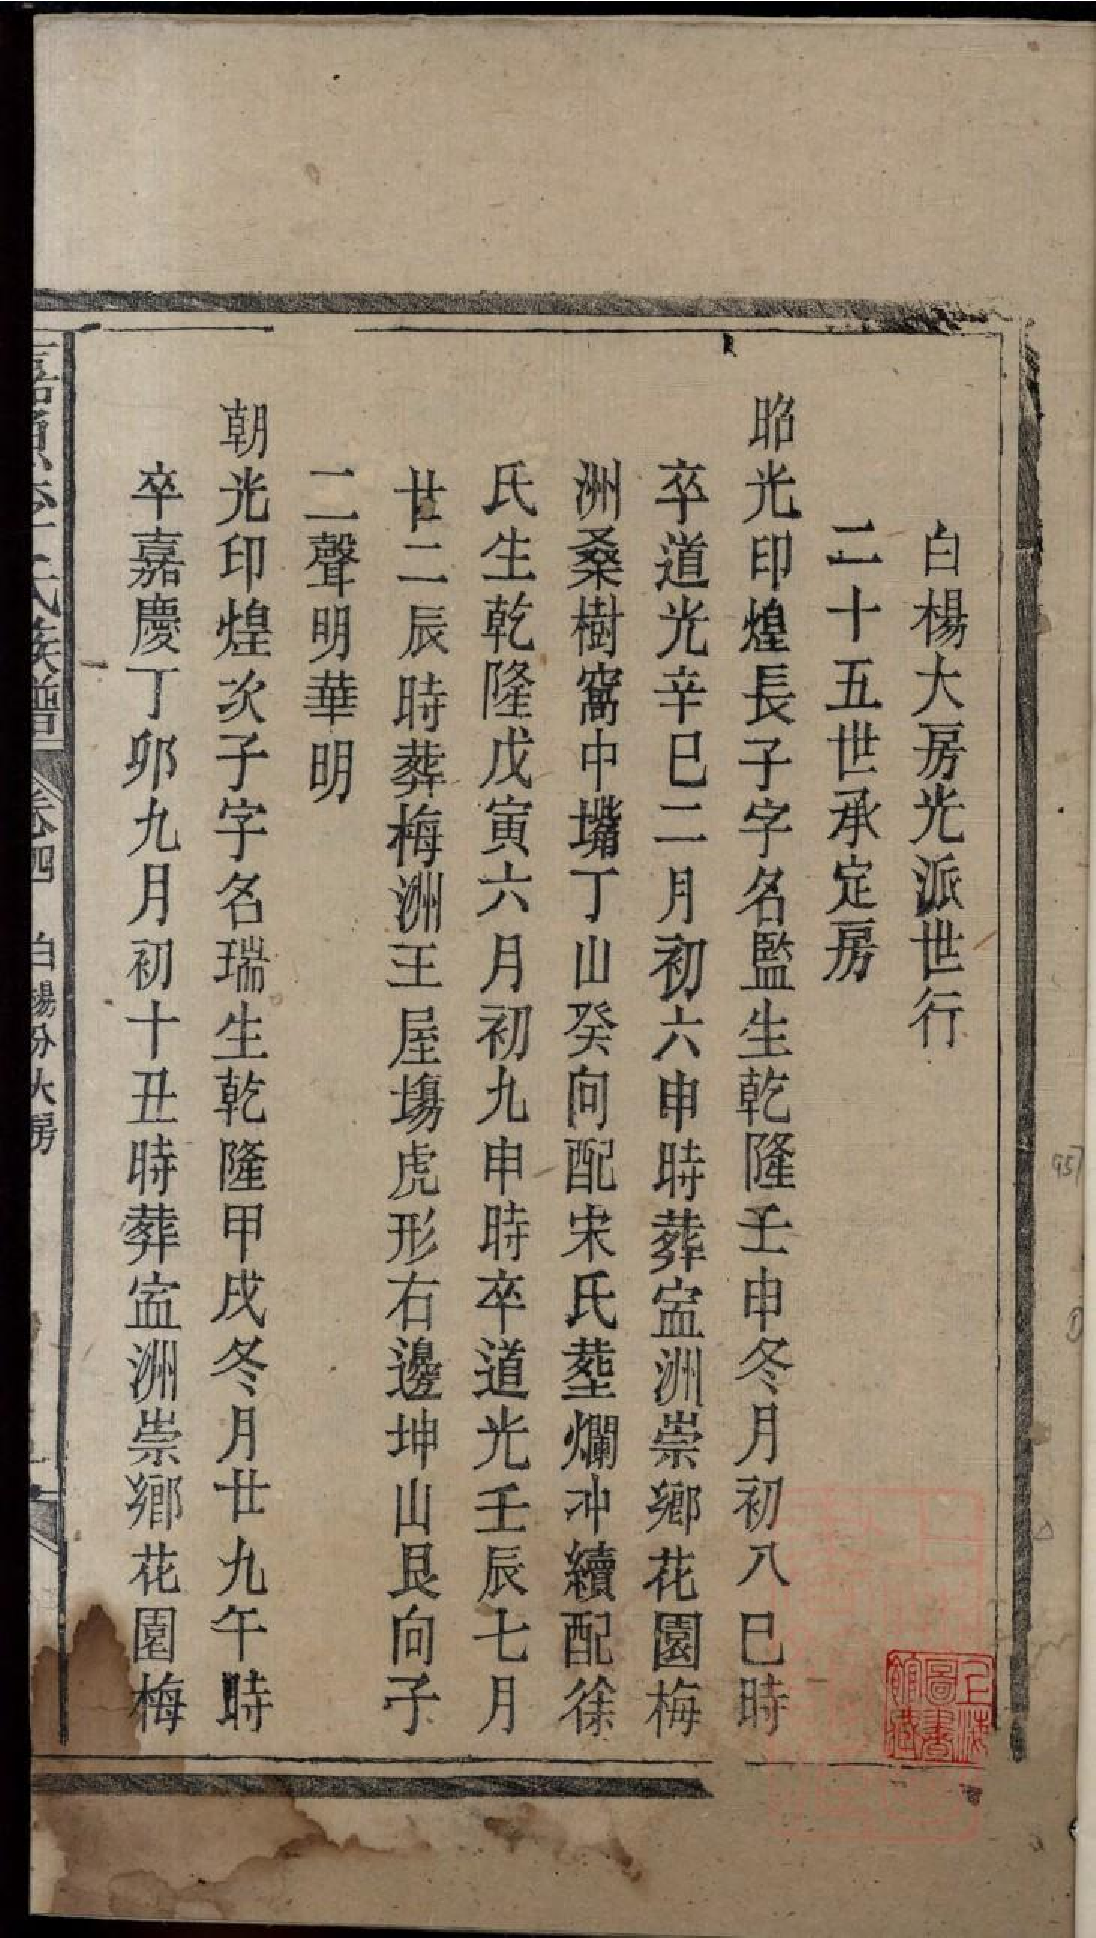 白楊大房光派世行
二十五世承定房
昭光印煌長子字名監生乾隆壬申冬月初八巳時
卒道光辛巳二月初六申時葬宓洲崇鄉花園梅
洲桑樹窩中墈丁山癸向配宋氏塟爛冲續配徐
氏生乾隆戊寅六月初九申時卒道光壬辰七月
廿二辰時葬梅洲王屋塲虎形右邊坤山艮向子
二聲明華明
朝光印煌次子字名瑞生乾隆甲戌冬月廿九午時
卒嘉慶丁卯九月初十丑時葬宓洲崇鄉花園梅
氏族譜 卷四 白楊分大房
上海圖書館藏